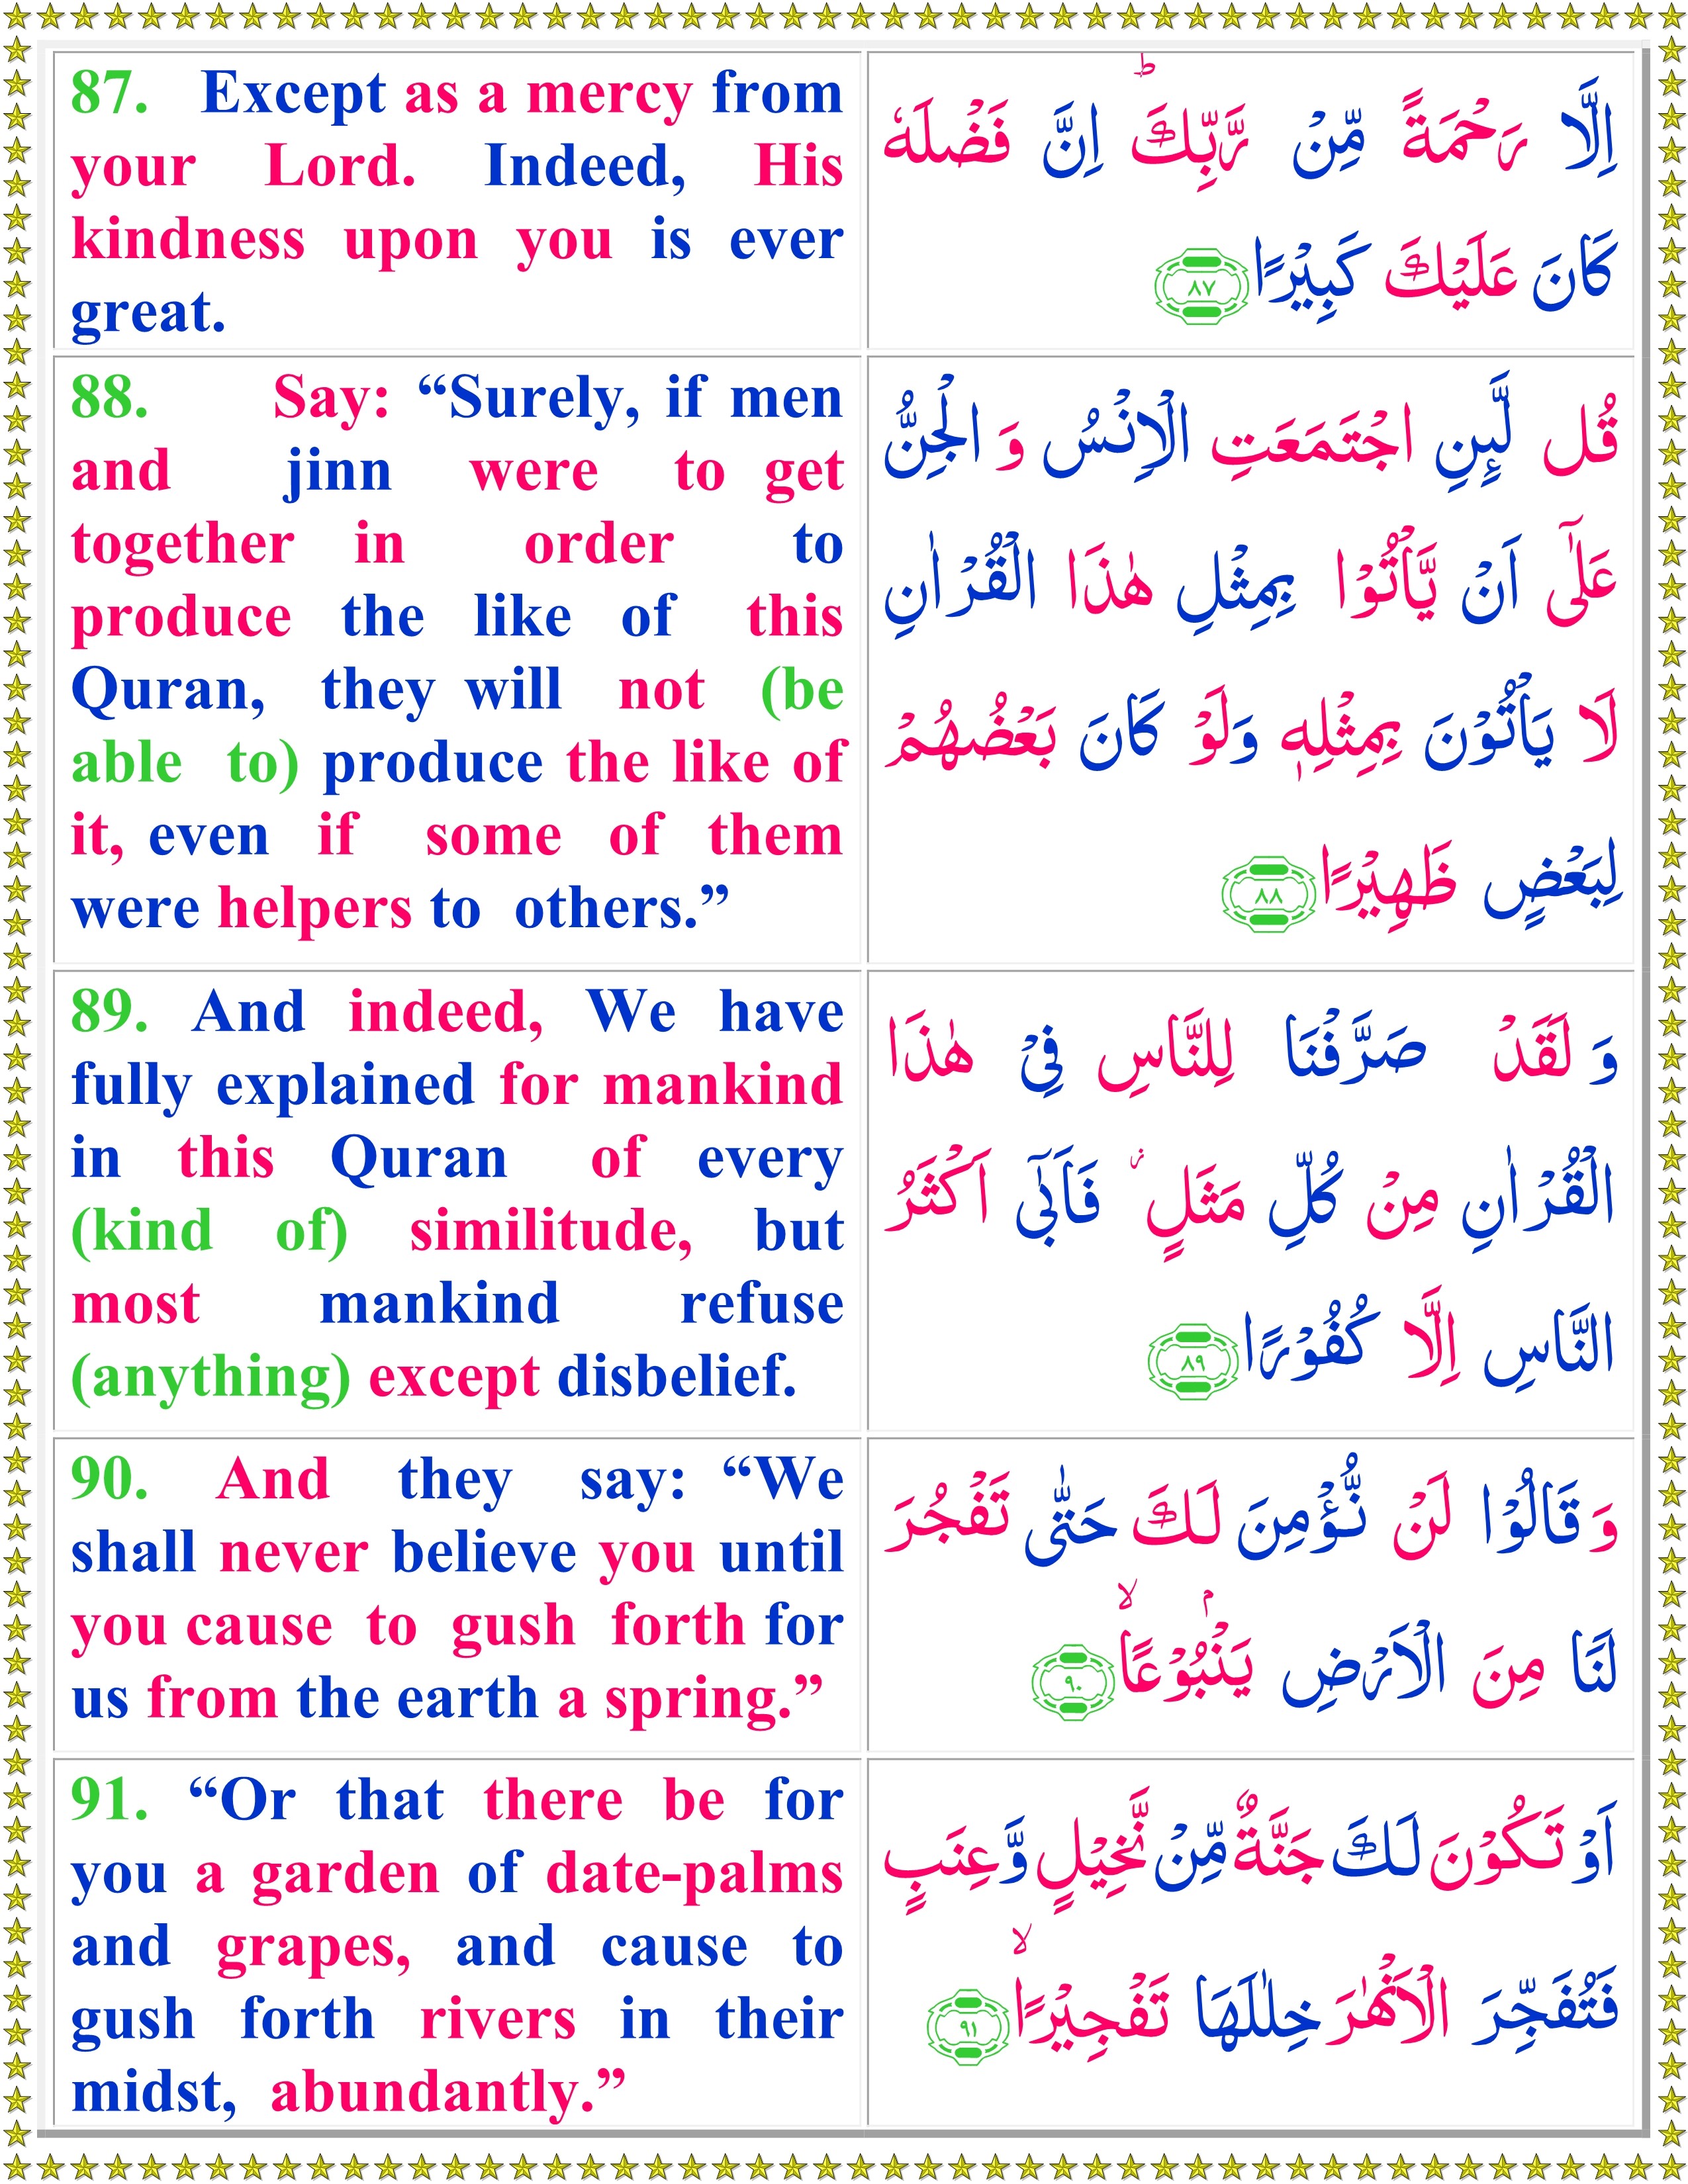 87. Except as a mercy from
your Lord. Indeed, His
kindness upon you is ever
great.
اِلَّا رَحْمَةً مِّنْ رَّبِّكَ ؕ اِنَّ فَضْلَهٗ
كَانَ عَلَيْكَ كَبِيْرًا ﴿۸۷﴾
88. Say: “Surely, if men
and jinn were to get
together in order to
produce the like of this
Quran, they will not (be
able to) produce the like of
it, even if some of them
were helpers to others.”
قُل لَّئِنِ اجْتَمَعَتِ الْاِنْسُ وَ الْجِنُّ
عَلٰٓى اَنْ يَّاْتُوْا بِمِثْلِ هٰذَا الْقُرْاٰنِ
لَا يَاْتُوْنَ بِمِثْلِهٖ وَلَوْ كَانَ بَعْضُهُمْ
لِبَعْضٍ ظَهِيْرًا ﴿۸۸﴾
89. And indeed, We have
fully explained for mankind
in this Quran of every
(kind of) similitude, but
most mankind refuse
(anything) except disbelief.
وَ لَقَدْ صَرَّفْنَا لِلنَّاسِ فِىْ هٰذَا
الْقُرْاٰنِ مِنْ كُلِّ مَثَلٍ ؗ فَاَبٰٓى اَكْثَرُ
النَّاسِ اِلَّا كُفُوْرًا ﴿۸۹﴾
90. And they say: “We
shall never believe you until
you cause to gush forth for
us from the earth a spring.”
وَ قَالُوْا لَنْ نُّؤْمِنَ لَكَ حَتّٰى تَفْجُرَ
لَنَا مِنَ الْاَرْضِ يَنْۢبُوْعًا ۙ ﴿۹۰﴾
91. “Or that there be for
you a garden of date-palms
and grapes, and cause to
gush forth rivers in their
midst, abundantly.”
اَوْ تَكُوْنَ لَكَ جَنَّةٌ مِّنْ نَّخِيْلٍ وَّعِنَبٍ
فَتُفَجِّرَ الْاَنْهٰرَ خِلٰلَهَا تَفْجِيْرًا ۙ ﴿۹۱﴾